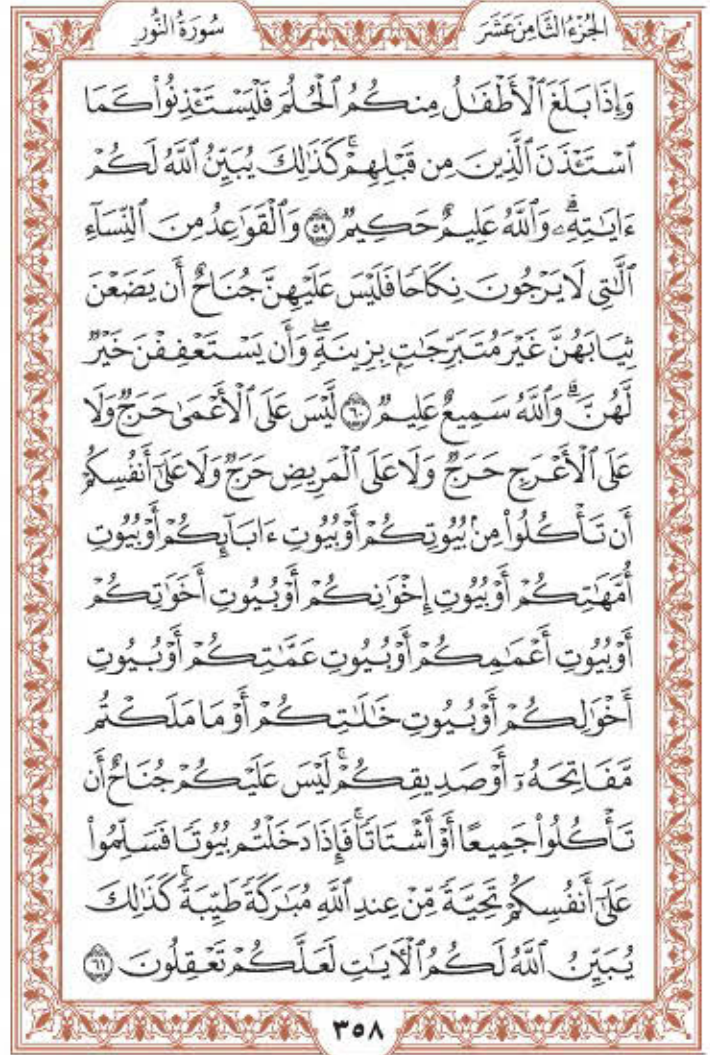 الجُزْءُ الثَّامِنَ عَشَرَ
سُورَةُ النُّور
وَإِذَا بَلَغَ ٱلْأَطْفَٰلُ مِنكُمُ ٱلْحُلُمَ فَلْيَسْتَـْٔذِنُوا۟ كَمَا
ٱسْتَـْٔذَنَ ٱلَّذِينَ مِن قَبْلِهِمْ ۚ كَذَٰلِكَ يُبَيِّنُ ٱللَّهُ لَكُمْ
ءَايَٰتِهِۦ ۗ وَٱللَّهُ عَلِيمٌ حَكِيمٌ ٥٩ وَٱلْقَوَٰعِدُ مِنَ ٱلنِّسَآءِ
ٱلَّٰتِى لَا يَرْجُونَ نِكَاحًا فَلَيْسَ عَلَيْهِنَّ جُنَاحٌ أَن يَضَعْنَ
ثِيَابَهُنَّ غَيْرَ مُتَبَرِّجَٰتٍۭ بِزِينَةٍ ۖ وَأَن يَسْتَعْفِفْنَ خَيْرٌ
لَّهُنَّ ۗ وَٱللَّهُ سَمِيعٌ عَلِيمٌ ٦٠ لَّيْسَ عَلَى ٱلْأَعْمَىٰ حَرَجٌ وَلَا
عَلَى ٱلْأَعْرَجِ حَرَجٌ وَلَا عَلَى ٱلْمَرِيضِ حَرَجٌ وَلَا عَلَىٰٓ أَنفُسِكُمْ
أَن تَأْكُلُوا۟ مِنۢ بُيُوتِكُمْ أَوْ بُيُوتِ ءَابَآئِكُمْ أَوْ بُيُوتِ
أُمَّهَٰتِكُمْ أَوْ بُيُوتِ إِخْوَٰنِكُمْ أَوْ بُيُوتِ أَخَوَٰتِكُمْ
أَوْ بُيُوتِ أَعْمَٰمِكُمْ أَوْ بُيُوتِ عَمَّٰتِكُمْ أَوْ بُيُوتِ
أَخْوَٰلِكُمْ أَوْ بُيُوتِ خَٰلَٰتِكُمْ أَوْ مَا مَلَكْتُم
مَّفَاتِحَهُۥٓ أَوْ صَدِيقِكُمْ ۚ لَيْسَ عَلَيْكُمْ جُنَاحٌ أَن
تَأْكُلُوا۟ جَمِيعًا أَوْ أَشْتَاتًا ۚ فَإِذَا دَخَلْتُم بُيُوتًا فَسَلِّمُوا۟
عَلَىٰٓ أَنفُسِكُمْ تَحِيَّةً مِّنْ عِندِ ٱللَّهِ مُبَٰرَكَةً طَيِّبَةً ۚ كَذَٰلِكَ
يُبَيِّنُ ٱللَّهُ لَكُمُ ٱلْـَٔايَٰتِ لَعَلَّكُمْ تَعْقِلُونَ ٦١
٣٥٨